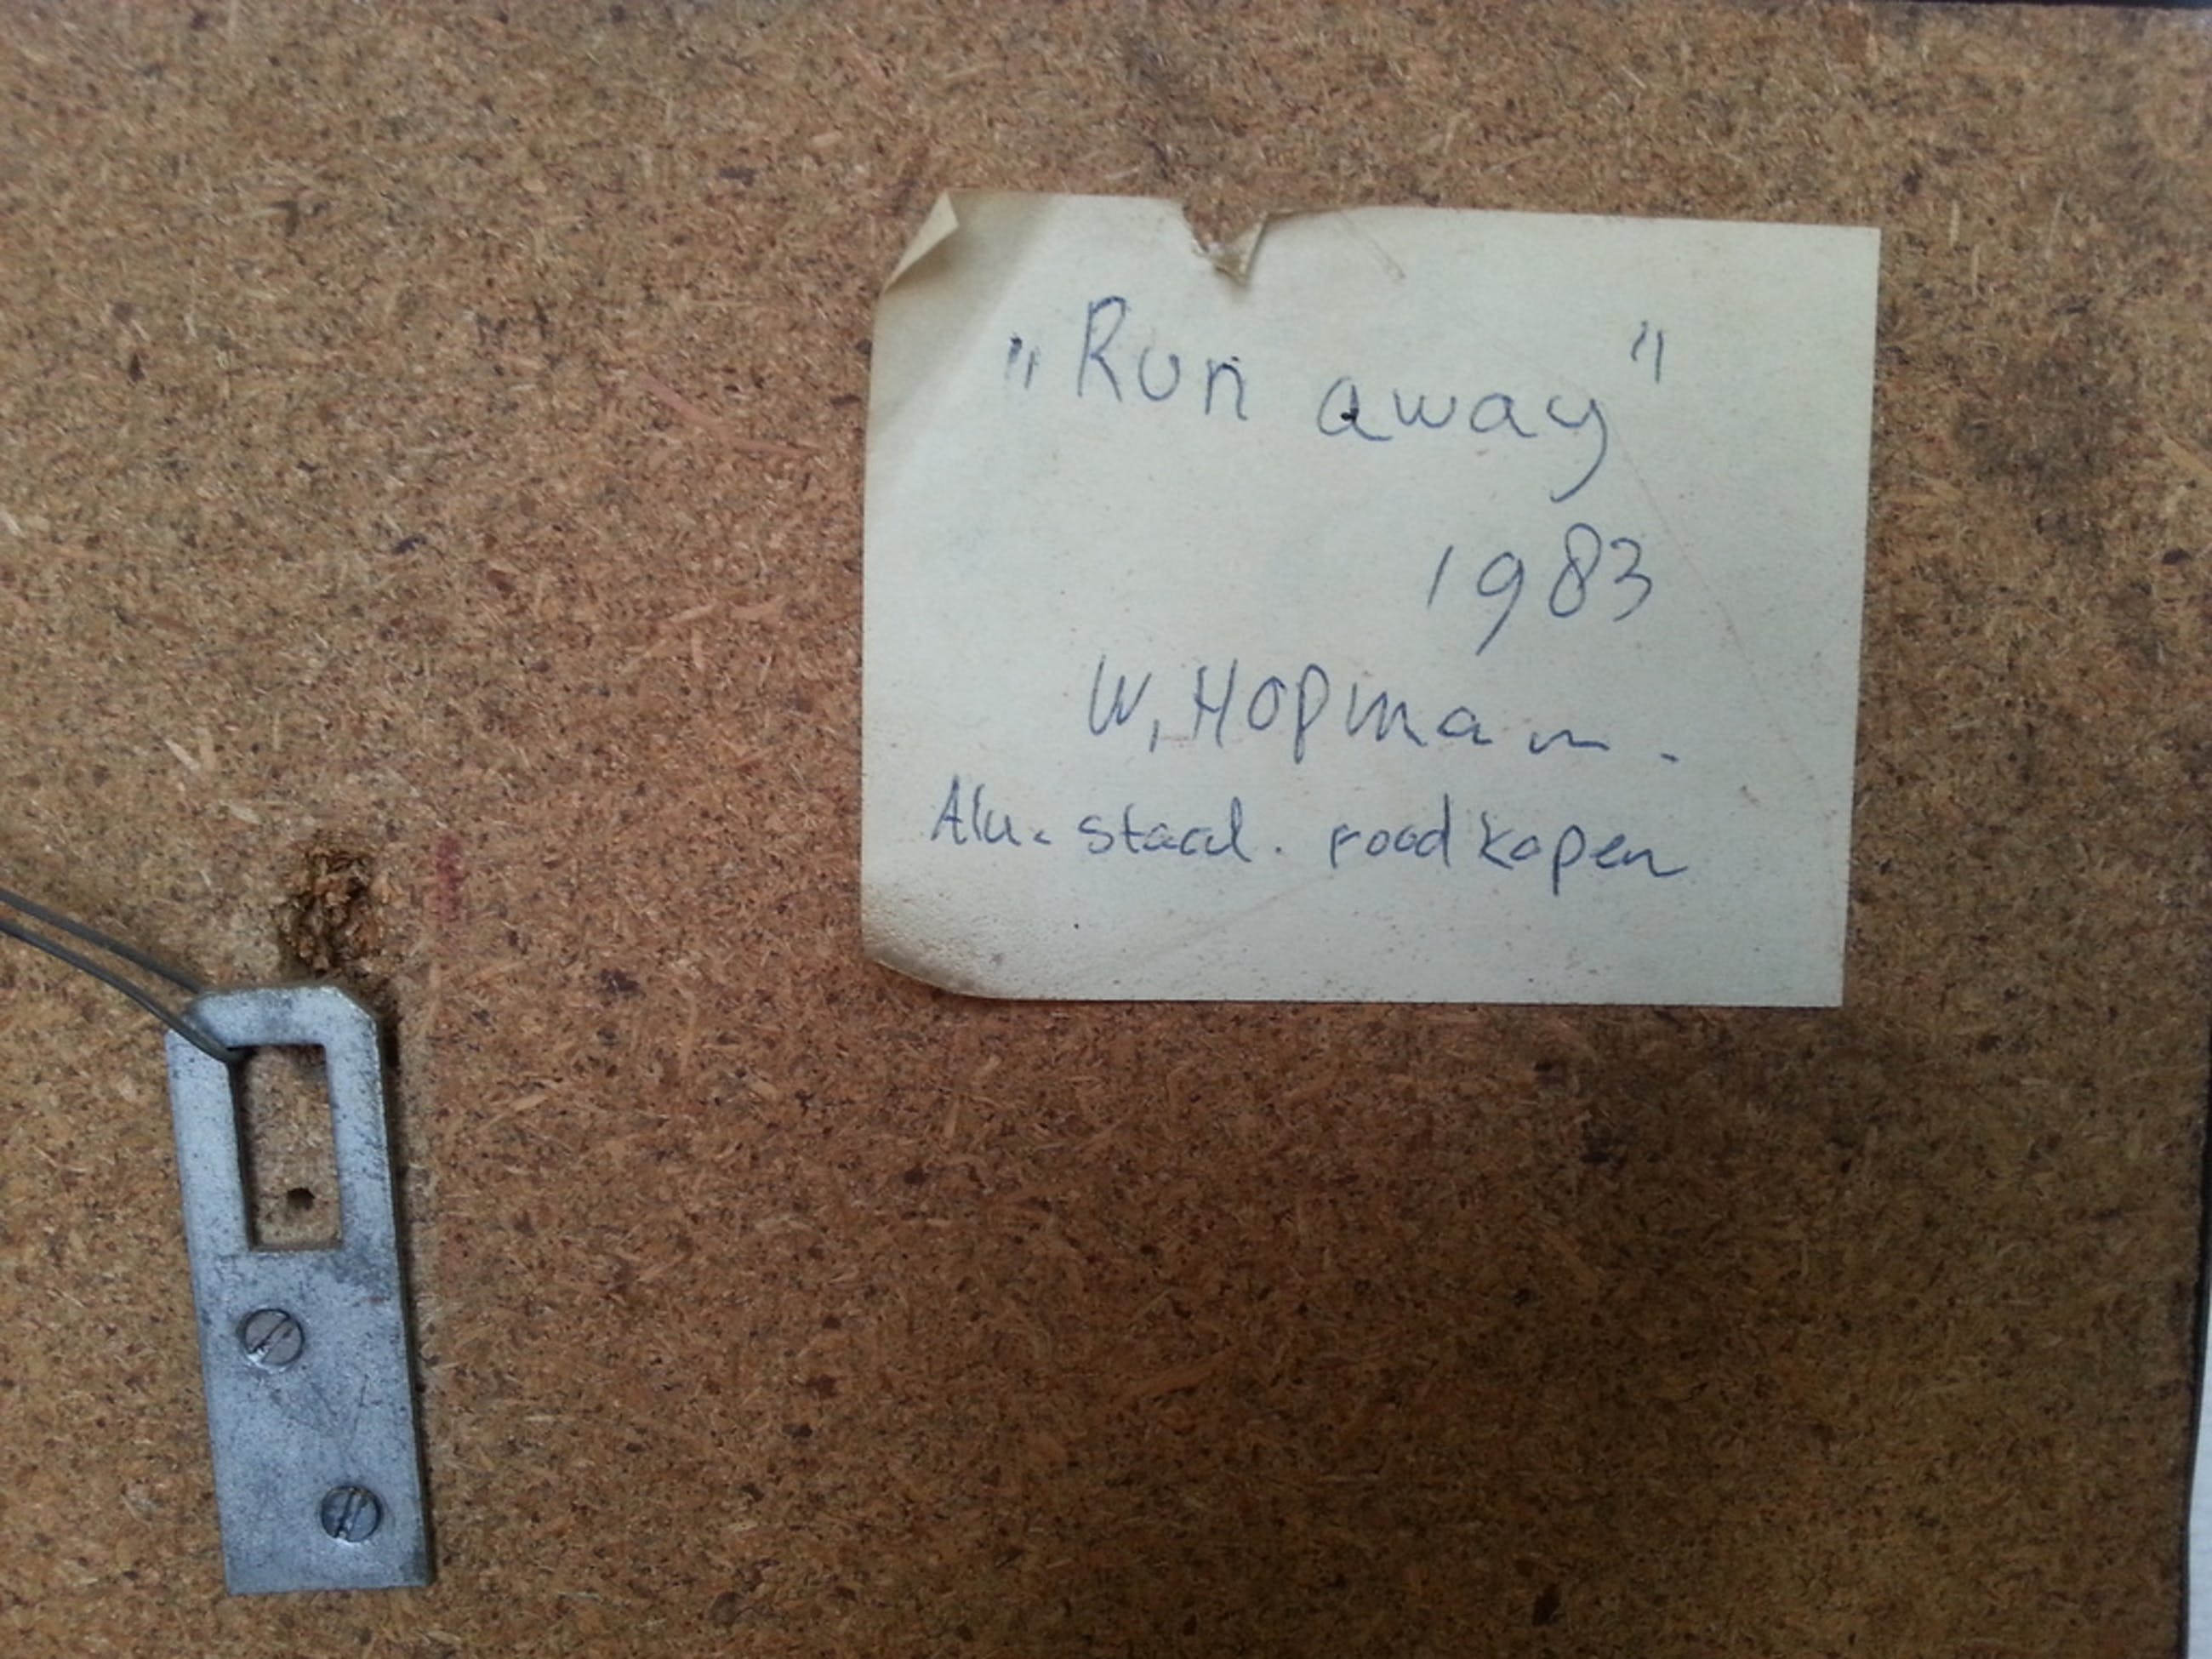 „Run away"
1983
W, Hopman.
Alu. staal. rood kopen